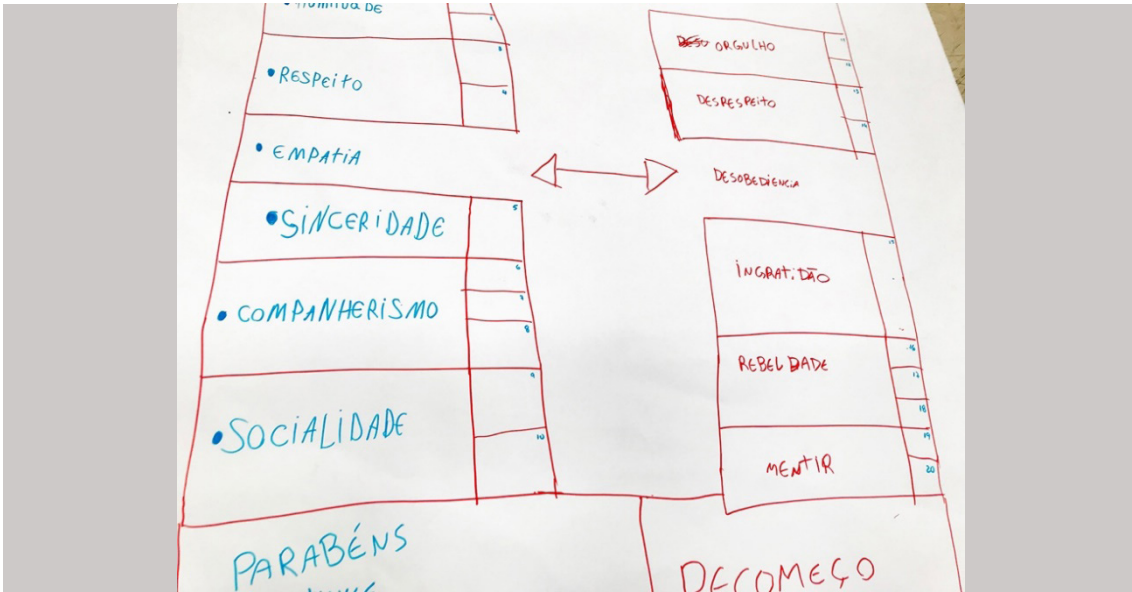 • HUMILDADE
• RESPEITO
• EMPATIA
• SINCERIDADE
• COMPANHERISMO
• SOCIALIDADE
PARABÉNS
5
6
8
9
10
ORGULHO
DESRESPEITO
DESOBEDIENCIA
INGRATIDÃO
REBELDADE
MENTIR
16
17
18
19
20
DECOMEÇO